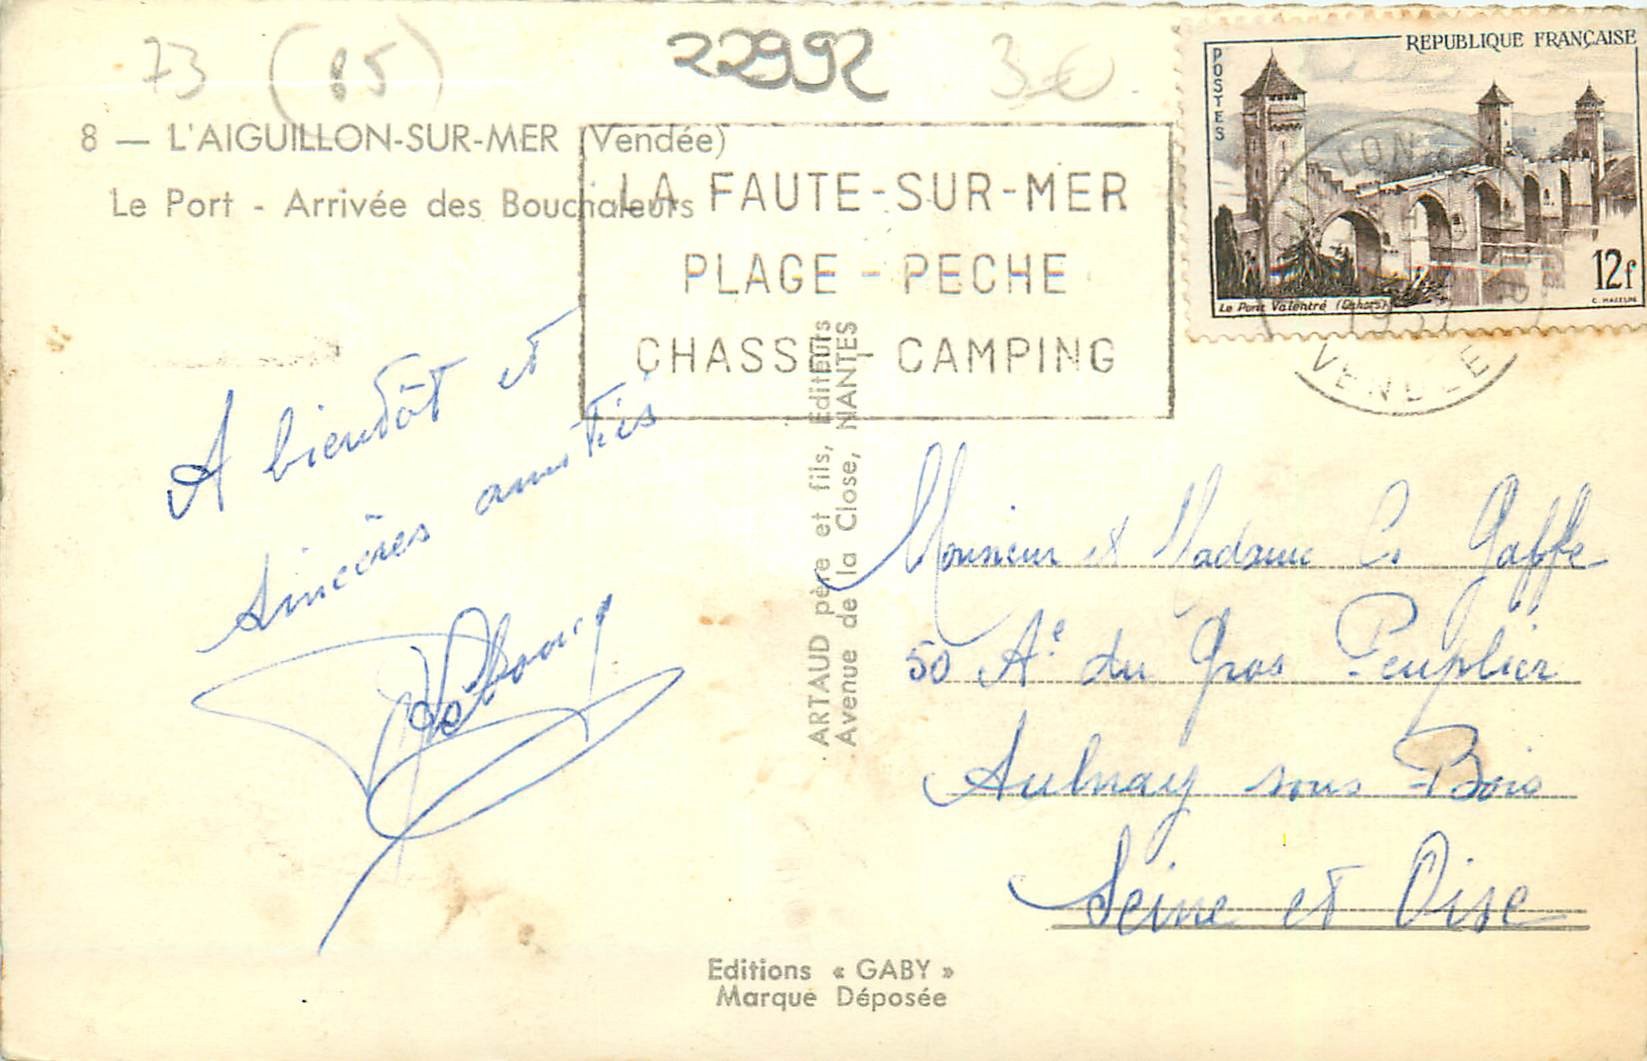 73 (85) 22992 3€
8 — L'AIGUILLON-SUR-MER (Vendée)
Le Port - Arrivée des Bouchaleurs
LA FAUTE-SUR-MER
PLAGE - PECHE
CHASSE - CAMPING
REPUBLIQUE FRANÇAISE
POSTES
12f
Le Pont Valentré (Cahors)
VENDEE
A bientôt et
sincères amitiés
ARTAUD père et fils, Editeurs
Avenue de la Close, NANTES
Monsieur et Madame C. Gaffe
50 Ae du Gros Peuplier
Aulnay sous-Bois
Seine et Oise
Editions « GABY »
Marque Déposée